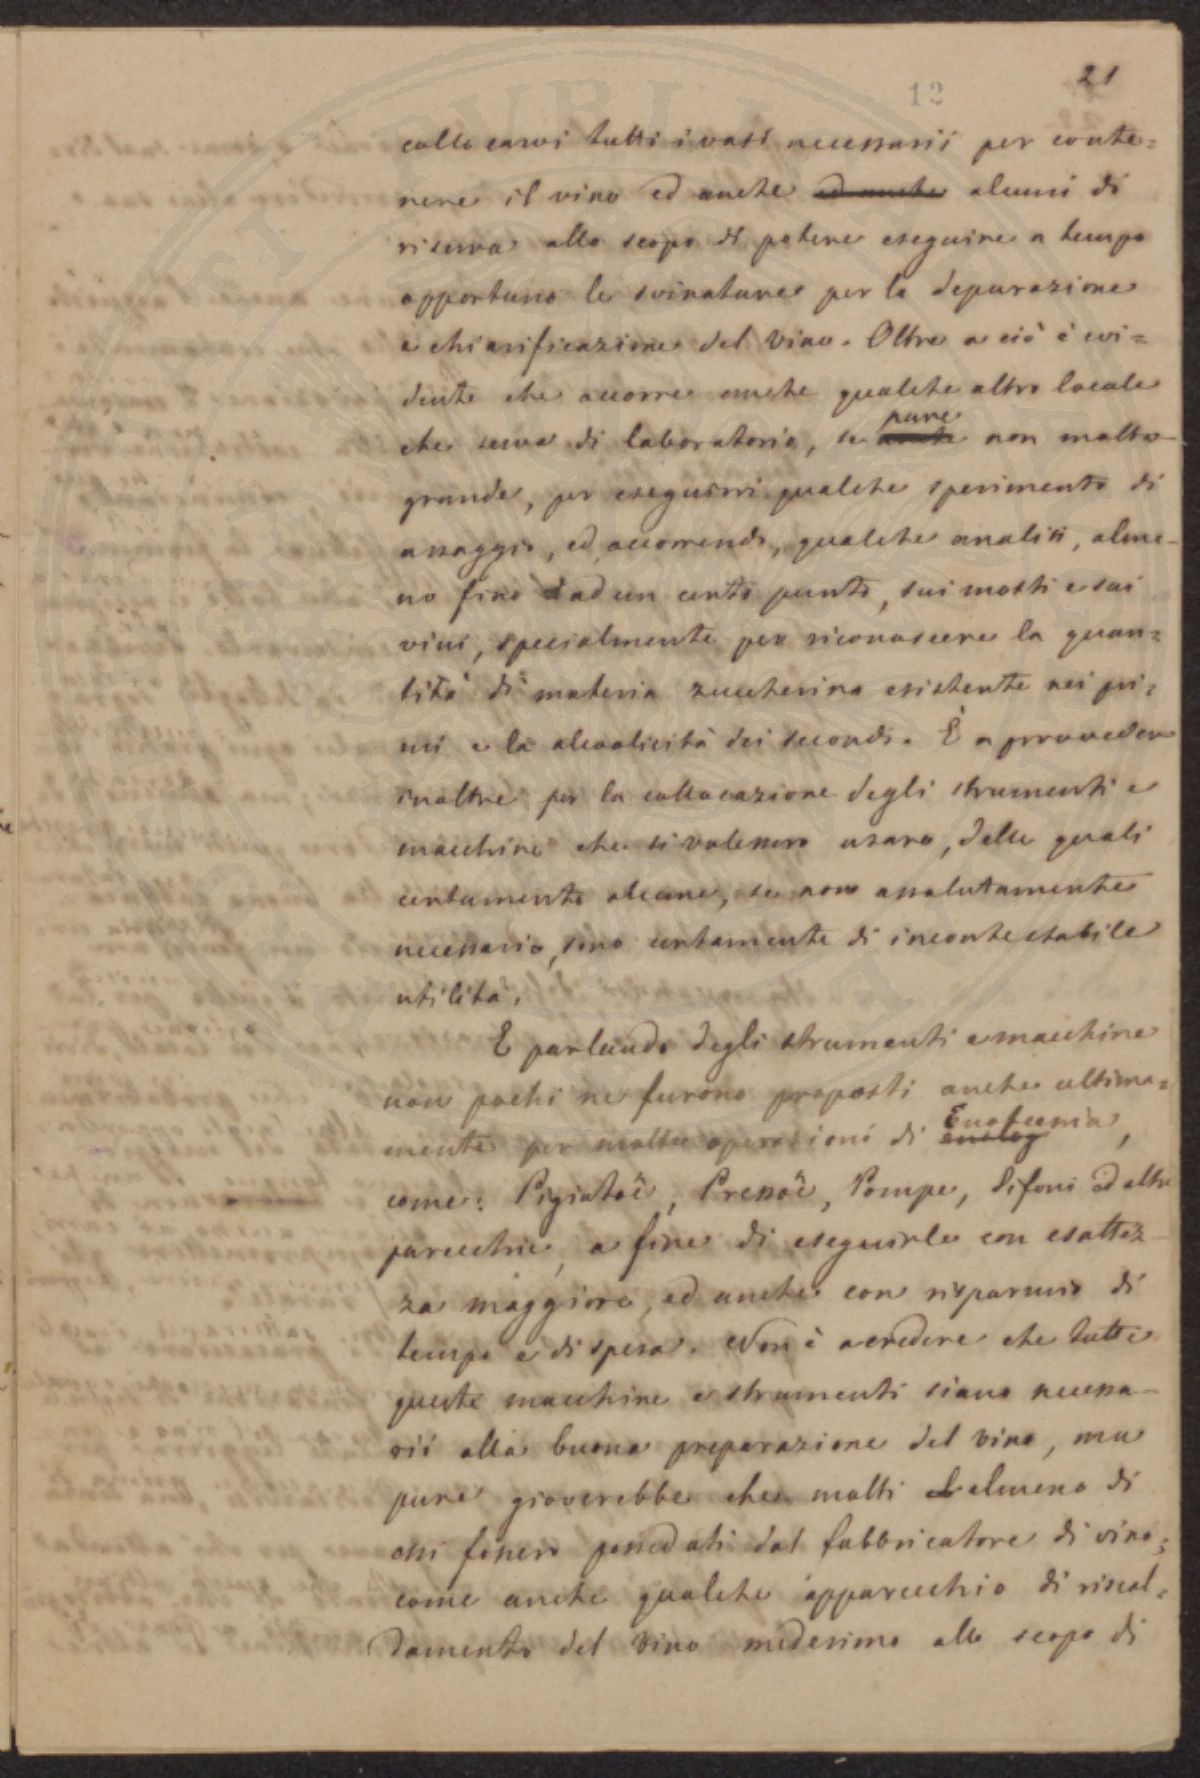 12
21
collocarvi tutti i vasi necessarii per conte=
nere il vino ed anche ed anche alcuni di
riserva allo scopo di potere eseguire a tempo
opportuno le svinature per la depurazione
e chiarificazione del vino. Oltre a ciò è evi=
dente che occorre anche qualche altro locale
che serva di laboratorio, se pure non molto
grande, per eseguirvi qualche sperimento di
assaggio, ed occorrendo, qualche analisi, alme-
no fino ad un certo punto, sui mosti e sui
vini, specialmente per riconoscere la quan=
tità di materia zuccherina esistente nei pri=
mi e la alcoolicità dei secondi. È a provvedere
inoltre per la collocazione degli strumenti e
macchine che si volessero usare, delle quali
certamente alcune, se non assolutamente
necessarie, sono certamente di incontestabile
utilità.
E parlando degli strumenti e macchine
non pochi ne furono proposti anche ultima=
mente per molte operazioni di enolog Enotecnia,
come: Pigiatoi, Pressoi, Pompe, Sifoni ed altre
parecchie, a fine di eseguirle con esattez-
za maggiore, ed anche con risparmio di
tempo e di spesa. Non è a credere che tutte
queste macchine e strumenti siano necessa-
rii alla buona preparazione del vino, ma
pure gioverebbe che molti almeno di
essi fossero posseduti dal fabbricatore di vino;
come anche qualche apparecchio di riscal=
damento del vino medesimo allo scopo di